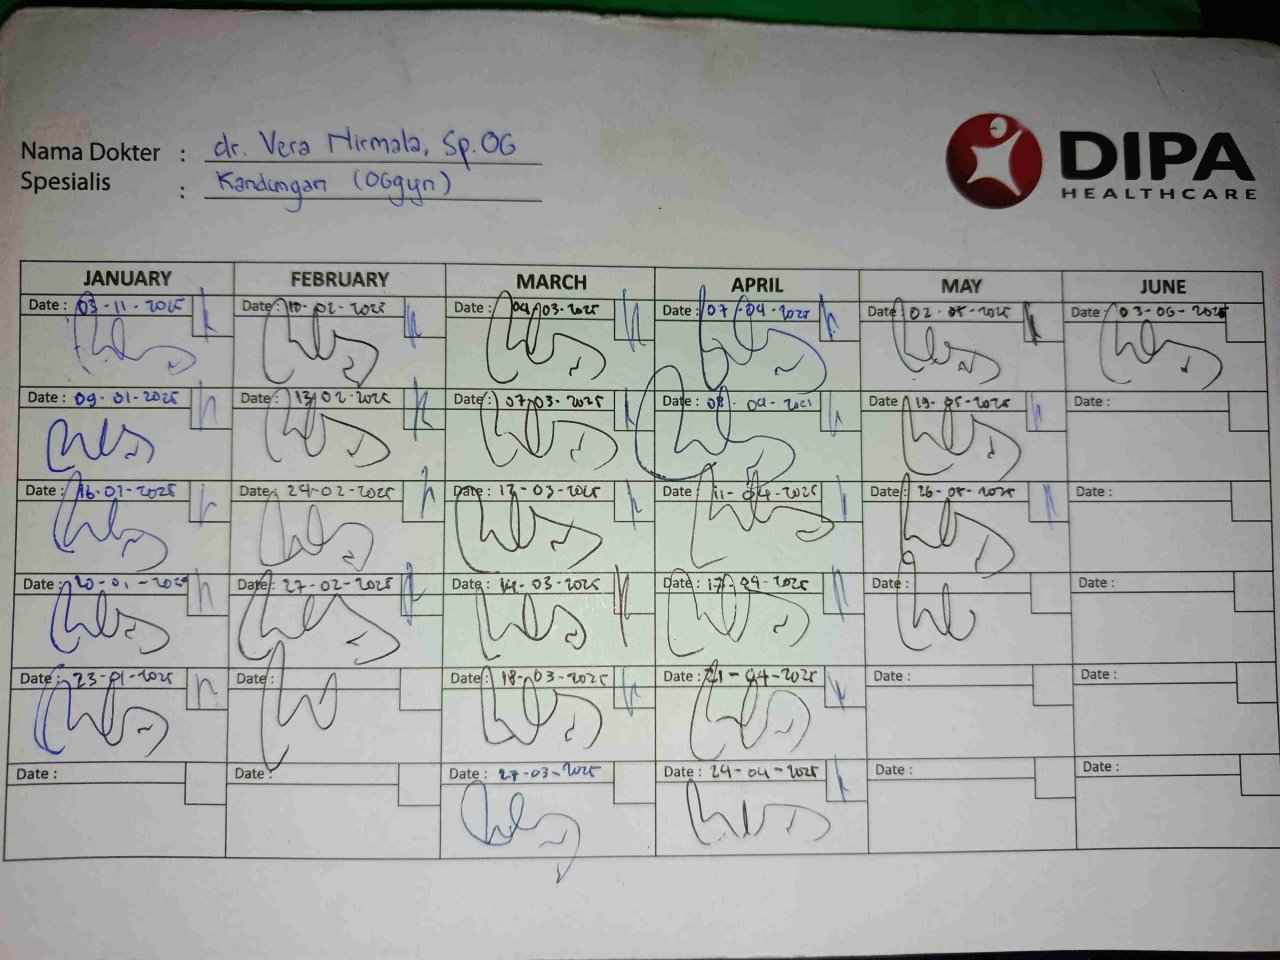 Nama Dokter : dr. Vera Nirmala, Sp.OG
Spesialis : Kandungan (OGgyn)
DIPA
HEALTHCARE
JANUARY FEBRUARY MARCH APRIL MAY JUNE
Date : 03-11-2025 Date : 10-02-2025 Date : 04-03-2025 Date : 07-04-2025 Date : 02-05-2025 Date : 03-06-2025
Date : 09-01-2025 Date : 13-02-2025 Date : 07-03-2025 Date : 08-04-2025 Date : 19-05-2025 Date :
Date : 16-01-2025 Date : 24-02-2025 Date : 12-03-2025 Date : 11-04-2025 Date : 26-05-2025 Date :
Date : 20-01-2025 Date : 27-02-2025 Date : 14-03-2025 Date : 17-04-2025 Date : Date :
Date : 23-01-2025 Date : Date : 18-03-2025 Date : 21-04-2025 Date : Date :
Date : Date : Date : 27-03-2025 Date : 24-04-2025 Date : Date :